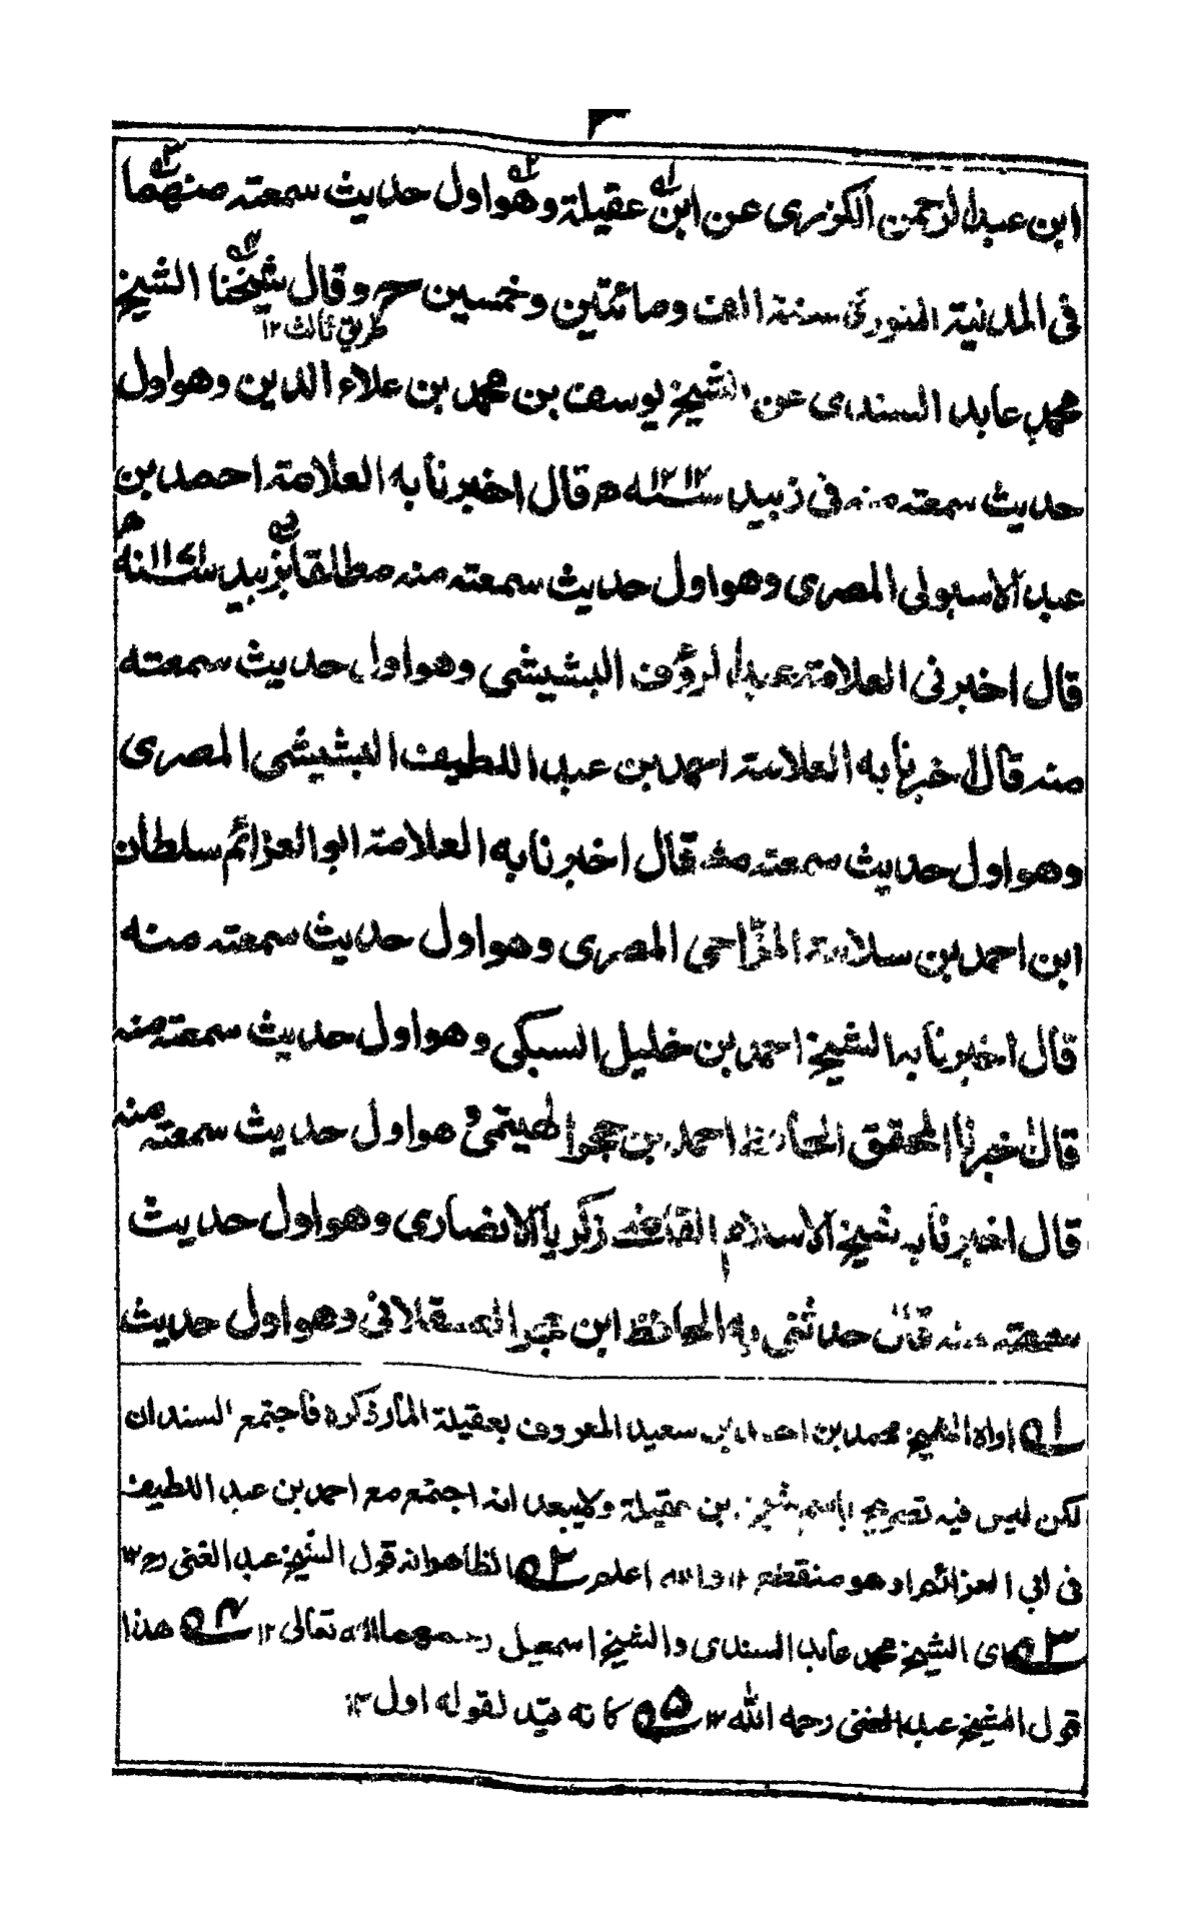 ابن عبدالرحمن الكزبرى عن ابن عقيلة وهو اول حديث سمعته منهما
فى المدنية المنورة سنة الف ومائتين وخمسين ح وقال شيخنا الشيخ
طريق ثالث ١٢
محمد عابد السندى عن الشيخ يوسف بن محمد بن علاء الدين وهو اول
حديث سمعته منه فى زبيد سنه ١٢١٢ه قال اخبرنا به العلامة احمد بن
عبد الاسبولى المصرى وهو اول حديث سمعته منه مطلقا بزبيد سنه
قال اخبرنى العلامة عبد الرؤف البشيشى وهو اول حديث سمعته
منه قال اخبرنا به العلامة احمد بن عبد اللطيف البشيشى المصرى
وهو اول حديث سمعته منه قال اخبرنا به العلامة ابو العزائم سلطان
ابن احمد بن سلامة المزاحى المصرى وهو اول حديث سمعته منه
قال اخبرنا به الشيخ احمد بن خليل السبكى وهو اول حديث سمعته منه
قال اخبرنا المحقق الحافظ احمد بن حجر الهيتمى وهو اول حديث سمعته منه
قال اخبرنا به شيخ الاسلام القاضى زكريا الانصارى وهو اول حديث
سمعته منه قال حدثنى به الحافظ ابن حجر العسقلانى وهو اول حديث
له١ اواه الشيخ محمد بن احمد بن سعيد المعروف بعقيلة المار ذكره فاجتمع السندان
لكن ليس فيه تصريح باسم شيخ بن عقيلة ولايبعد انه اجتمع مع احمد بن عبد اللطيف
فى ابى العزائم او هو منقطع ١٢ والله اعلم له٢ الظاهر انه قول الشيخ عبد الغنى رح ١٢
له٣ اى الشيخ محمد عابد السندى والشيخ اسمعيل رحمهما الله تعالى ١٢ له٤ هذا
قول الشيخ عبد الغنى رحمه الله ١٢ له٥ كانه قيد لقوله اول ١٢